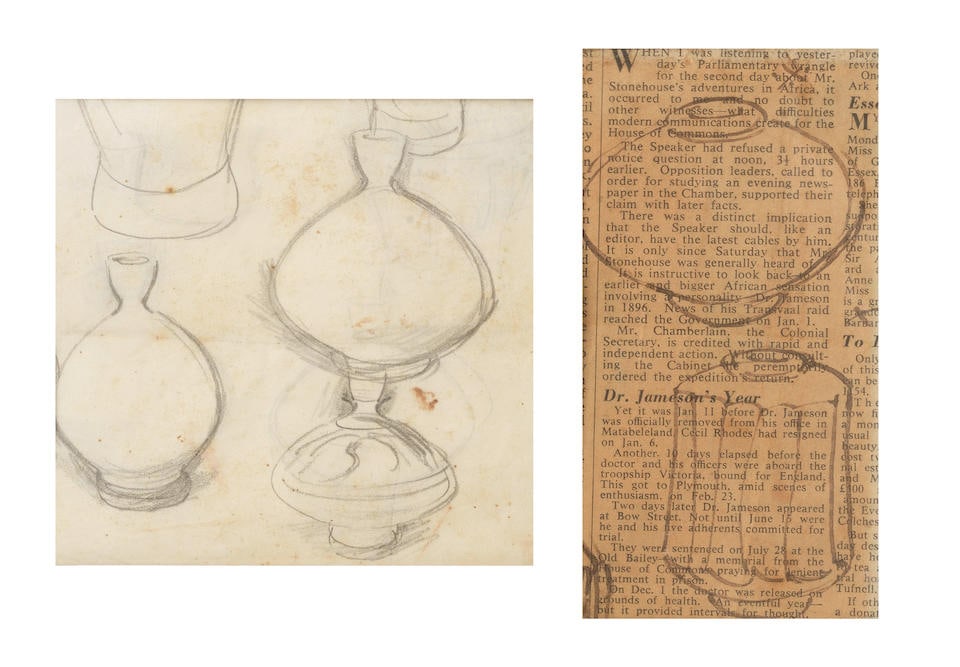 WHEN I was listening to yester-
day's Parliamentary wrangle
for the second day about Mr.
Stonehouse's adventures in Africa, it
occurred to me and no doubt to
other witnesses—what difficulties
modern communications create for the
House of Commons.
The Speaker had refused a private
notice question at noon, 3½ hours
earlier. Opposition leaders, called to
order for studying an evening news-
paper in the Chamber, supported their
claim with later facts.
There was a distinct implication
that the Speaker should, like an
editor, have the latest cables by him.
It is only since Saturday that Mr.
Stonehouse was generally heard of.
It is instructive to look back to an
earlier and bigger African sensation
involving a personality—Dr. Jameson
in 1896. News of his Transvaal raid
reached the Government on Jan. 1.
Mr. Chamberlain, the Colonial
Secretary, is credited with rapid and
independent action. Without consult-
ing the Cabinet he peremptorily
ordered the expedition's return.
Dr. Jameson's Year
Yet it was Jan. 11 before Dr. Jameson
was officially removed from his office in
Matabeleland. Cecil Rhodes had resigned
on Jan. 6.
Another 10 days elapsed before the
doctor and his officers were aboard the
troopship Victoria, bound for England.
This got to Plymouth, amid scenes of
enthusiasm, on Feb. 23.
Two days later Dr. Jameson appeared
at Bow Street. Not until June 15 were
he and his five adherents committed for
trial.
They were sentenced on July 28 at the
Old Bailey—with a memorial from the
House of Commons praying for lenient
treatment in prison.
On Dec. 1 the doctor was released on
grounds of health. An eventful year—
but it provided intervals for thought.
Ark
Miss
Essex,
Sir
Anne
Miss
is a
To
Only
of this
The
usual
beauty
and M
£
the Eve
Colches
But s
day des
tea
Tufnell,
If oth
a dona